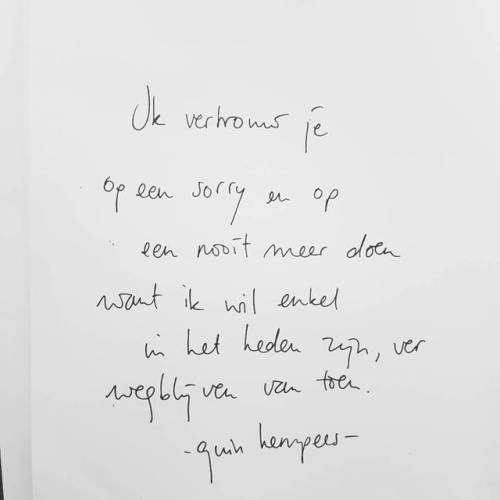 Ik vertrouw je
op een sorry en op
een nooit meer doen
want ik wil enkel
in het heden zijn, ver
wegblijven van toen.